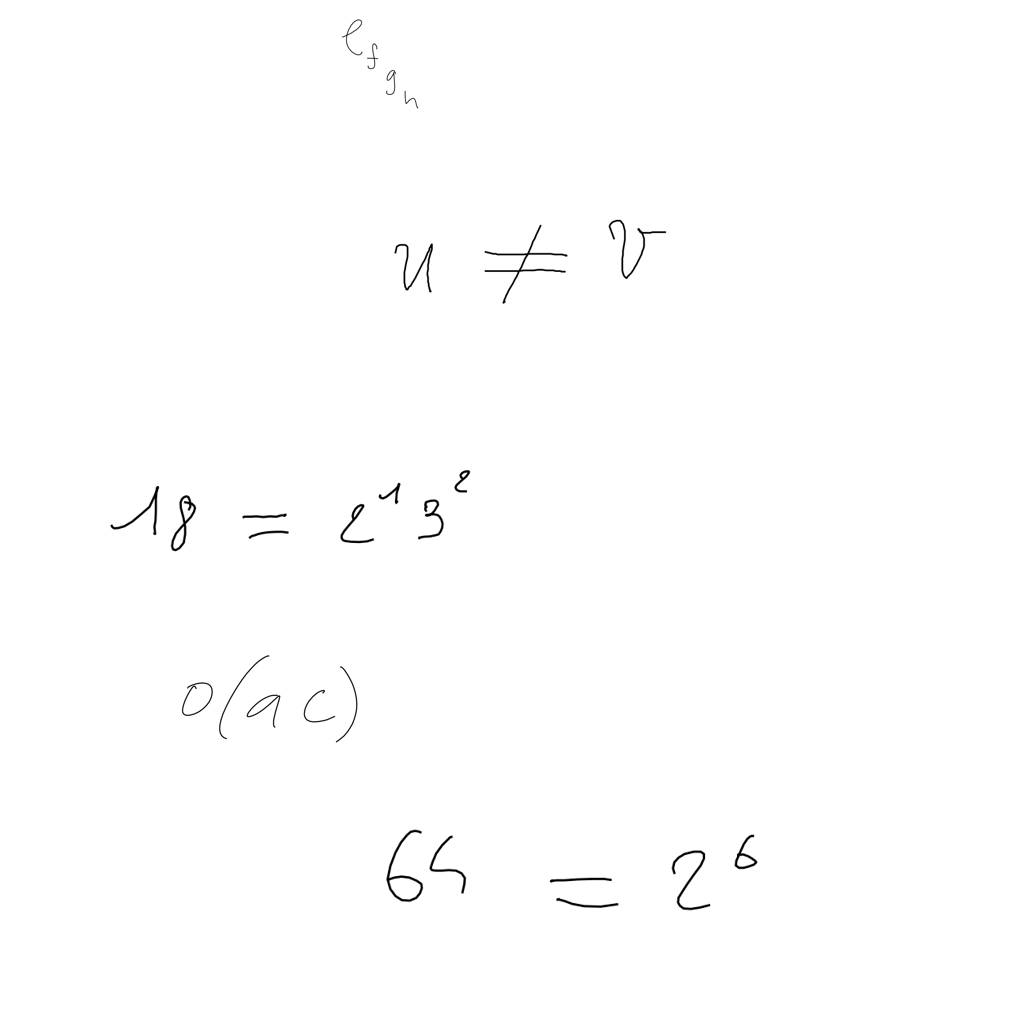 e_{f_{g_{h}}}
u ≠ v
18 = 2^1 3^2
o(ac)
64 = 2^6